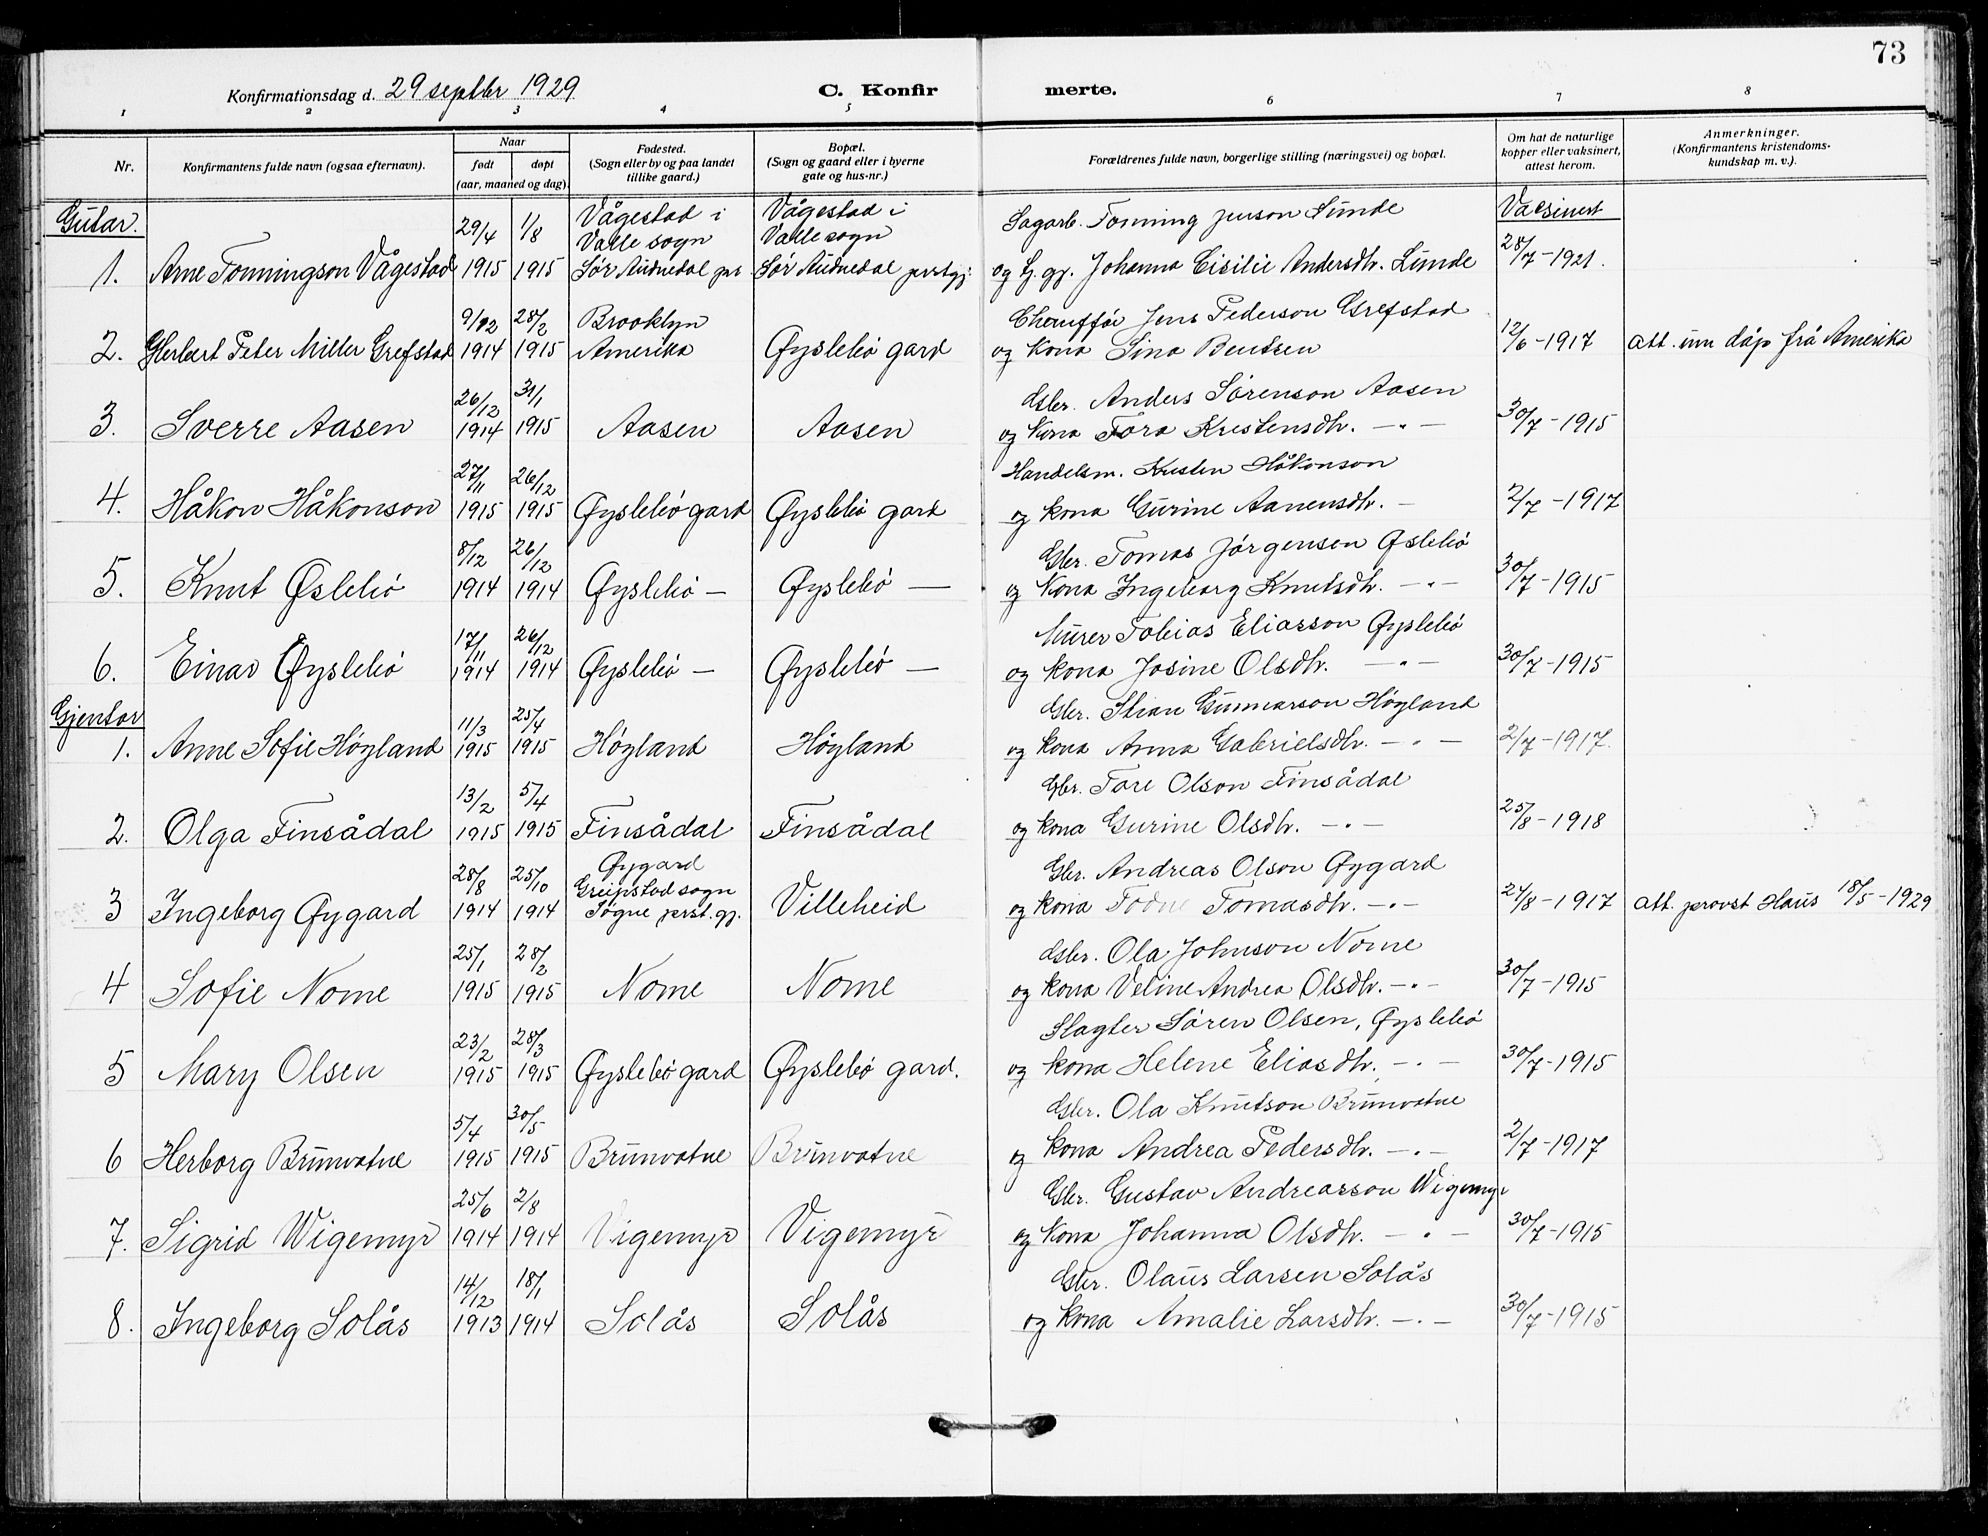 73
Konfirmationsdag d. 29 septbr 1929
C. Konfirmerte.
1 2 3 4 5 6 7 8
Nr.
Konfirmantens fulde navn (ogsaa efternavn).
Naar
født
døpt
(aar, maaned og dag).
Fødested.
(Sogn eller by og paa landet
tillike gaard.)
Bopæl.
(Sogn og gaard eller i byerne
gate og hus-nr.)
Forældrenes fulde navn, borgerlige stilling (næringsvei) og bopæl.
Om hat de naturlige
kopper eller vaksinert,
attest herom.
Anmerkninger.
(Konfirmantens kristendoms-
kundskap m. v.).
Gutar.
29/4 1/8 Vågestad i Vågestad i Sagarb. Tonning Lunde Vacsinert
Valle sogn Valle sogn
1. Arne Tonningson Vågestad 1915 1915 Sør Audnedal Sør Audnedal prstgj. og Johanna Cisilie Andersdtr. Lunde 28/7-1921.
9/12 28/2 Brooklyn Jens Pederson Grefstad
2. Herbert Peter Miller Grefstad 1914 1915 Amerika Øyslebø gard og kona Sina Bentsen 12/6-1917 att. um dåp frå Amerika
26/12 31/1 Gbr. Anders Sørenson Aasen
3. Sverre Aasen 1914 1915 Aasen Aasen og kona Tora Kristensdtr. -"- 30/7-1915
27/11 26/12 Handelsm. Kristen Håkonson
4. Håkon Håkonson 1915 1915 Øyslebø gard Øyslebø gard og kona Gurine Aanensdtr. - 2/7-1917
8/12 26/12 Gbr. Tomas Jørgensen Øslebø
5. Knut Øslebø 1914 1914 Øyslebø - Øyslebø - og kona Ingeborg Knutsdtr. -"- 30/7-1915
17/11 26/12 Murer Tobias Eliasson Øyslebø
6. Einar Øyslebø 1914 1914 Øyslebø - Øyslebø - og kona Josine Olsdtr. -"- 30/7-1915
Gjentor
11/3 25/4 Gbr. Stian Gunnarson Høyland
1. Anne Sofie Høyland 1915 1915 Høyland Høyland og kona Anna Gabrielsdtr. -"- 2/7-1917.
13/2 5/4 Gbr. Tore Olson Finsådal
2. Olga Finsådal 1915 1915 Finsådal Finsådal og kona Gurine Olsdtr. -"- 25/8-1918
28/8 25/10 Øygard Gbr. Andreas Olson Øygard
Greipstad sogn
3 Ingeborg Øygard 1914 1914 Søgne prst.gj. Villeheid og kona Todne Tomasdtr. -"- 24/8-1917 att. provst Haus 18/5-1929
25/1 28/2 Gbr. Ola Johnson Nome
4 Sofie Nome 1915 1915 Nome Nome og kona Veline Andrea Olsdtr. -"- 30/7-1915
23/2 28/3 Slagter Søren Olsen, Øyslebø
5 Mary Olsen 1915 1915 Øyslebø gard Øyslebø gard. og kona Helene Eliasdtr. -"- 30/7-1915
5/4 30/5 Gbr. Ola Knutson Brunvatne
6 Herborg Brunvatne 1915 1915 Brunvatne Brunvatne og kona Andrea Pedersdtr. -"- 2/7-1917
25/6 2/8 Gbr. Gustav Andreasson Wigemyr
7. Sigrid Wigemyr 1914 1914 Vigemyr Vigemyr og kona Johanna Olsdtr. -"- 30/7-1915
14/12 18/1 Gbr. Olaus Larsen Solås
8. Ingeborg Solås 1913 1914 Solås Solås og kona Amalie Larsdtr. -"- 30/7-1915